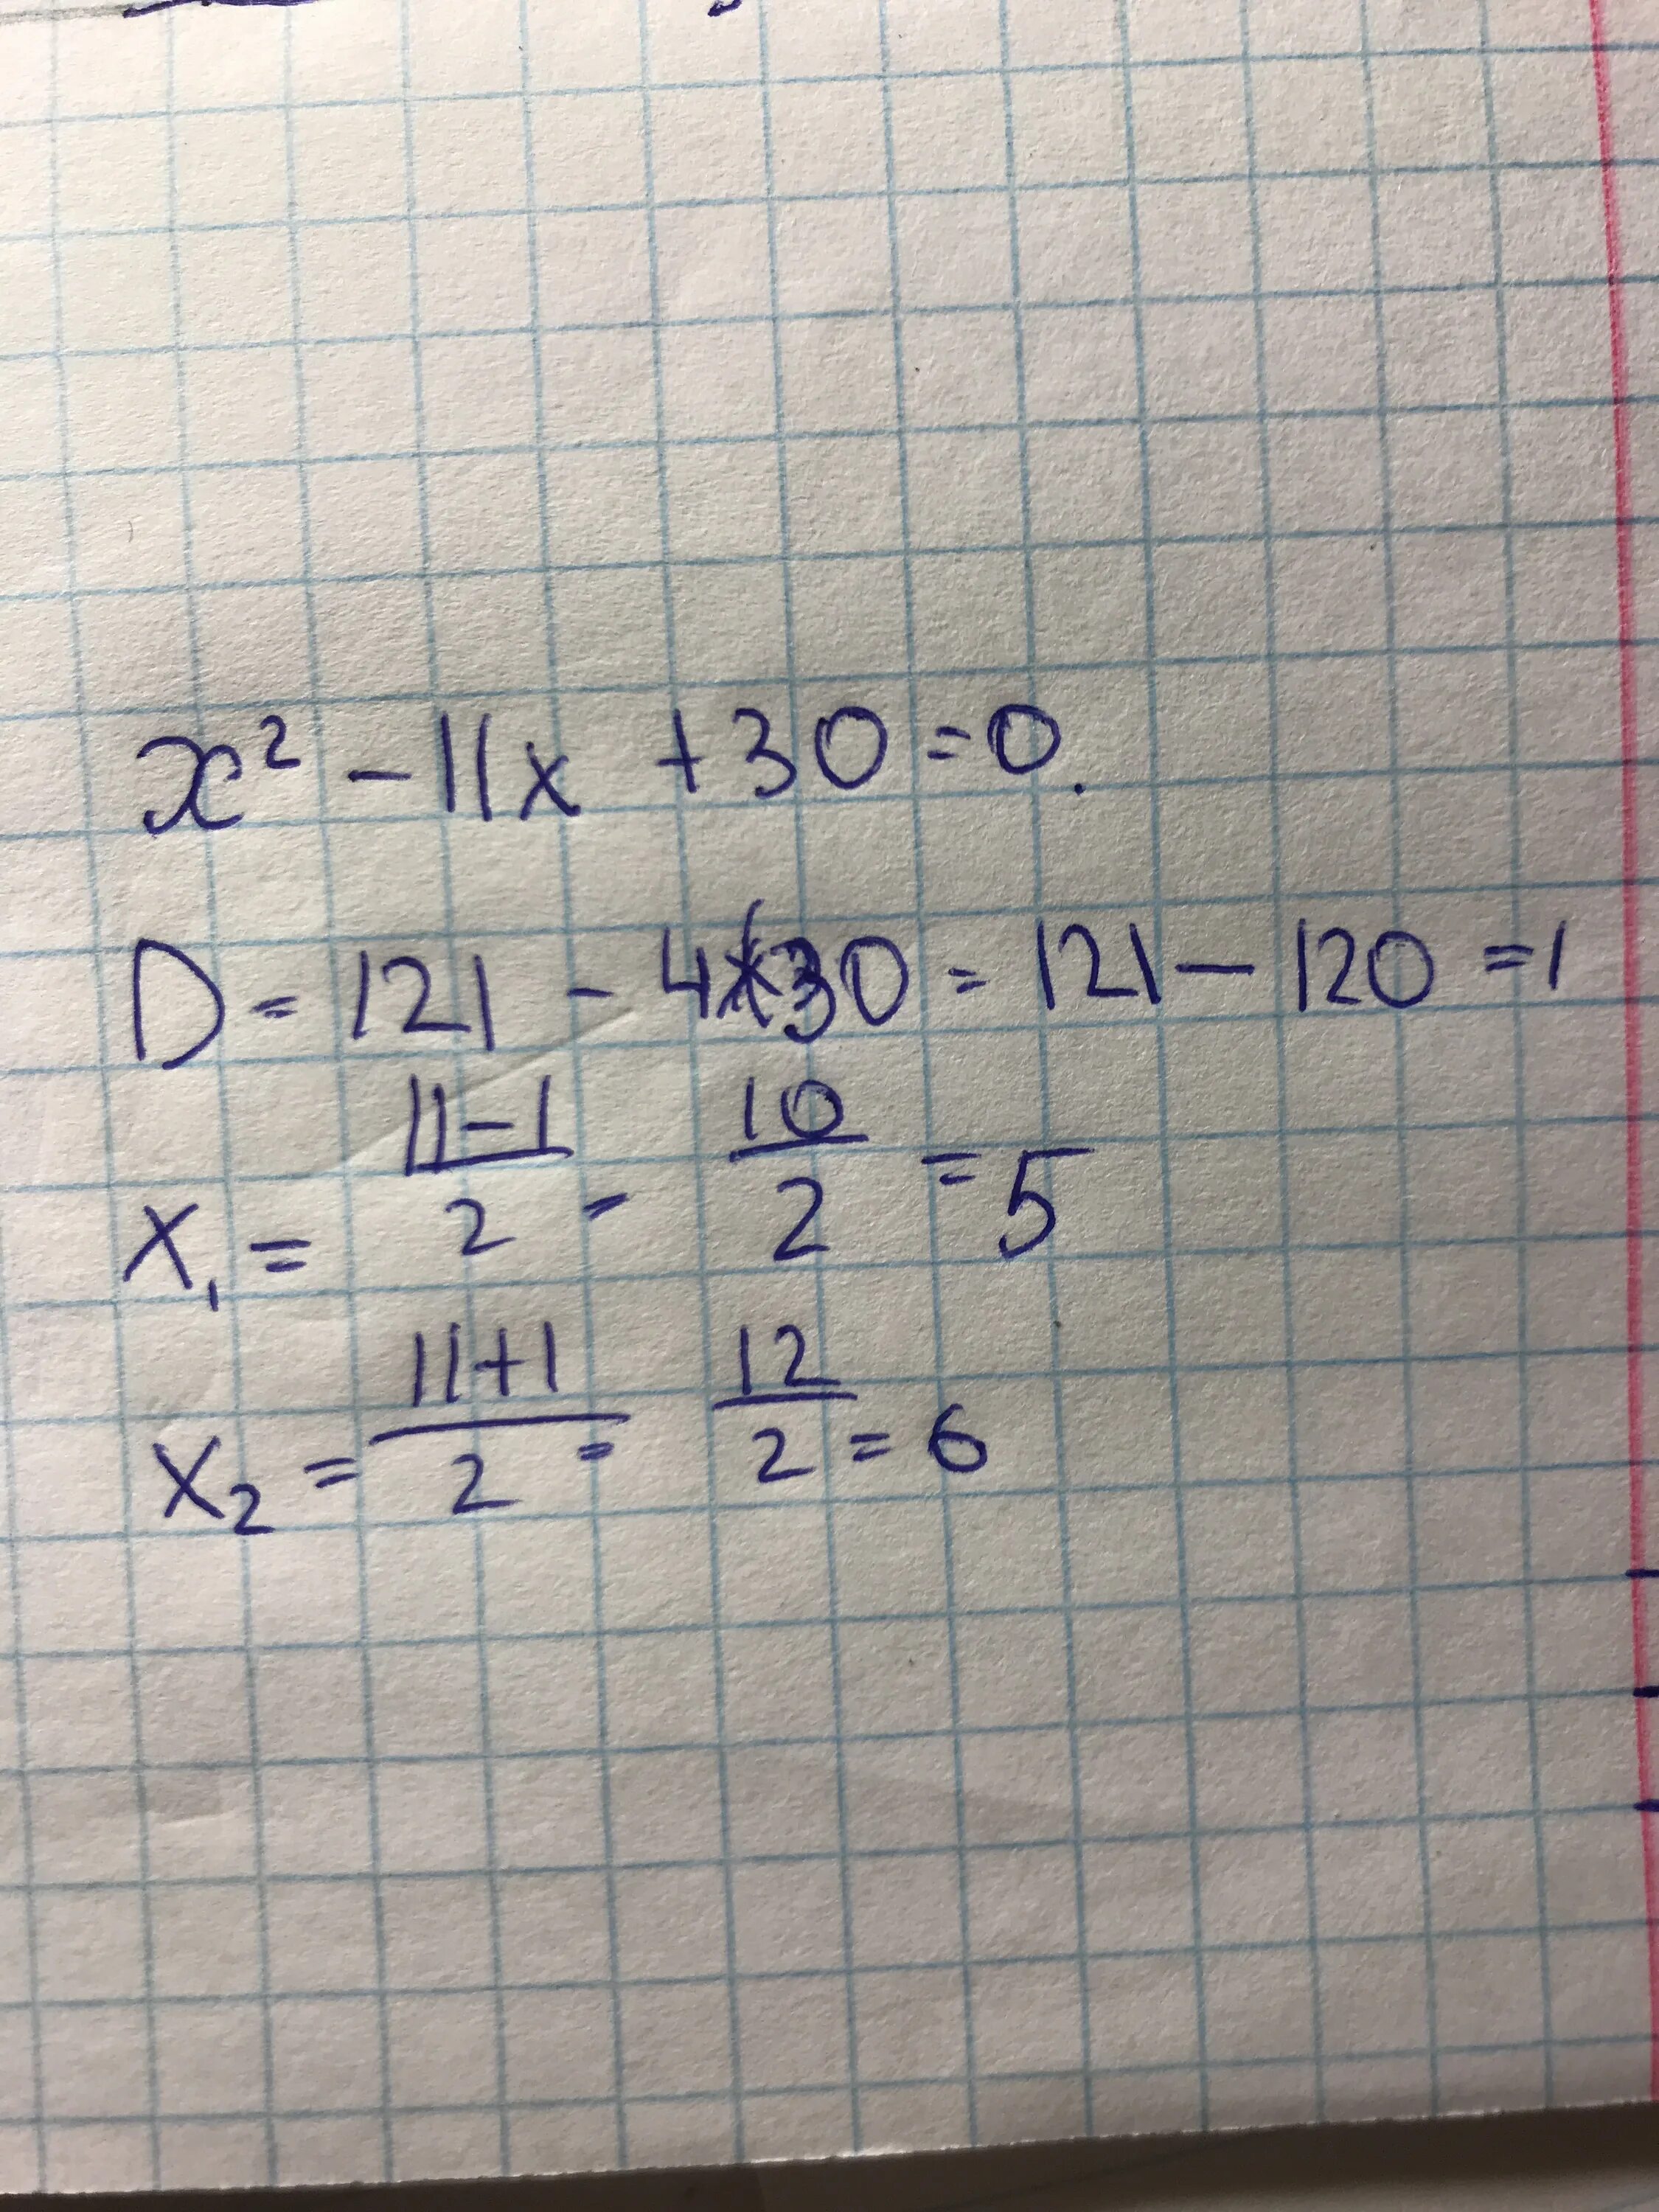 x² - 11x + 30 = 0.
D = 121 - 4*30 = 121 - 120 = 1
x₁ = (11-1)/2 = 10/2 = 5
x₂ = (11+1)/2 = 12/2 = 6